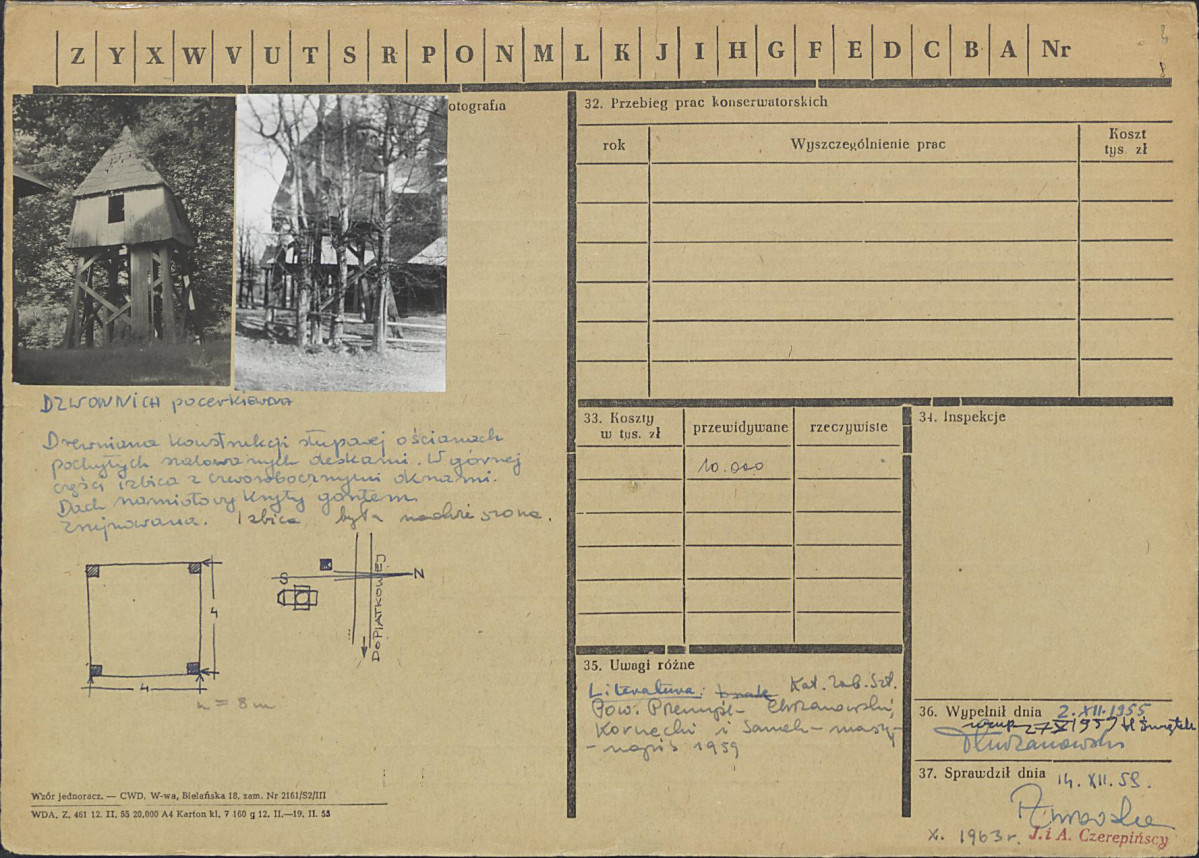 Z Y X W V U T S R P O N M L K J I H G F E D C B A Nr
otografia
DZWONNICA pocerkiewna
Drewniana konstrukcji słupowej o ścianach
pochyłych szalowanych deskami. W górnej
części izbica z czworobocznymi oknami.
Dach namiotowy kryty gontem.
Zrujnowana. Izbica była nadwieszona.
4
4
h = 8 m
S
N
DO PIĄTKOWEJ
Wzór jednoracz. — CWD, W-wa, Bielańska 18, zam. Nr 2161/S2/III
WDA. Z. 461 12. II. 55 20.000 A4 Karton kl. 7 160 g 12. II.—19. II. 55
32. Przebieg prac konserwatorskich
rok
Wyszczególnienie prac
Koszt
tys. zł
33. Koszty
w tys. zł
przewidywane
rzeczywiste
10.000
34. Inspekcje
35. Uwagi różne
Literatura: brak Kat. Zab. Szt.
Pow. Przemyśl - Chrzanowski,
Kornecki i Samek - maszy-
- nopis 1959
36. Wypełnił dnia 2. XII. 1955
1959
37. Sprawdził dnia 14. XII. 59.
X. 1963 r. J. i A. Czerepińscy